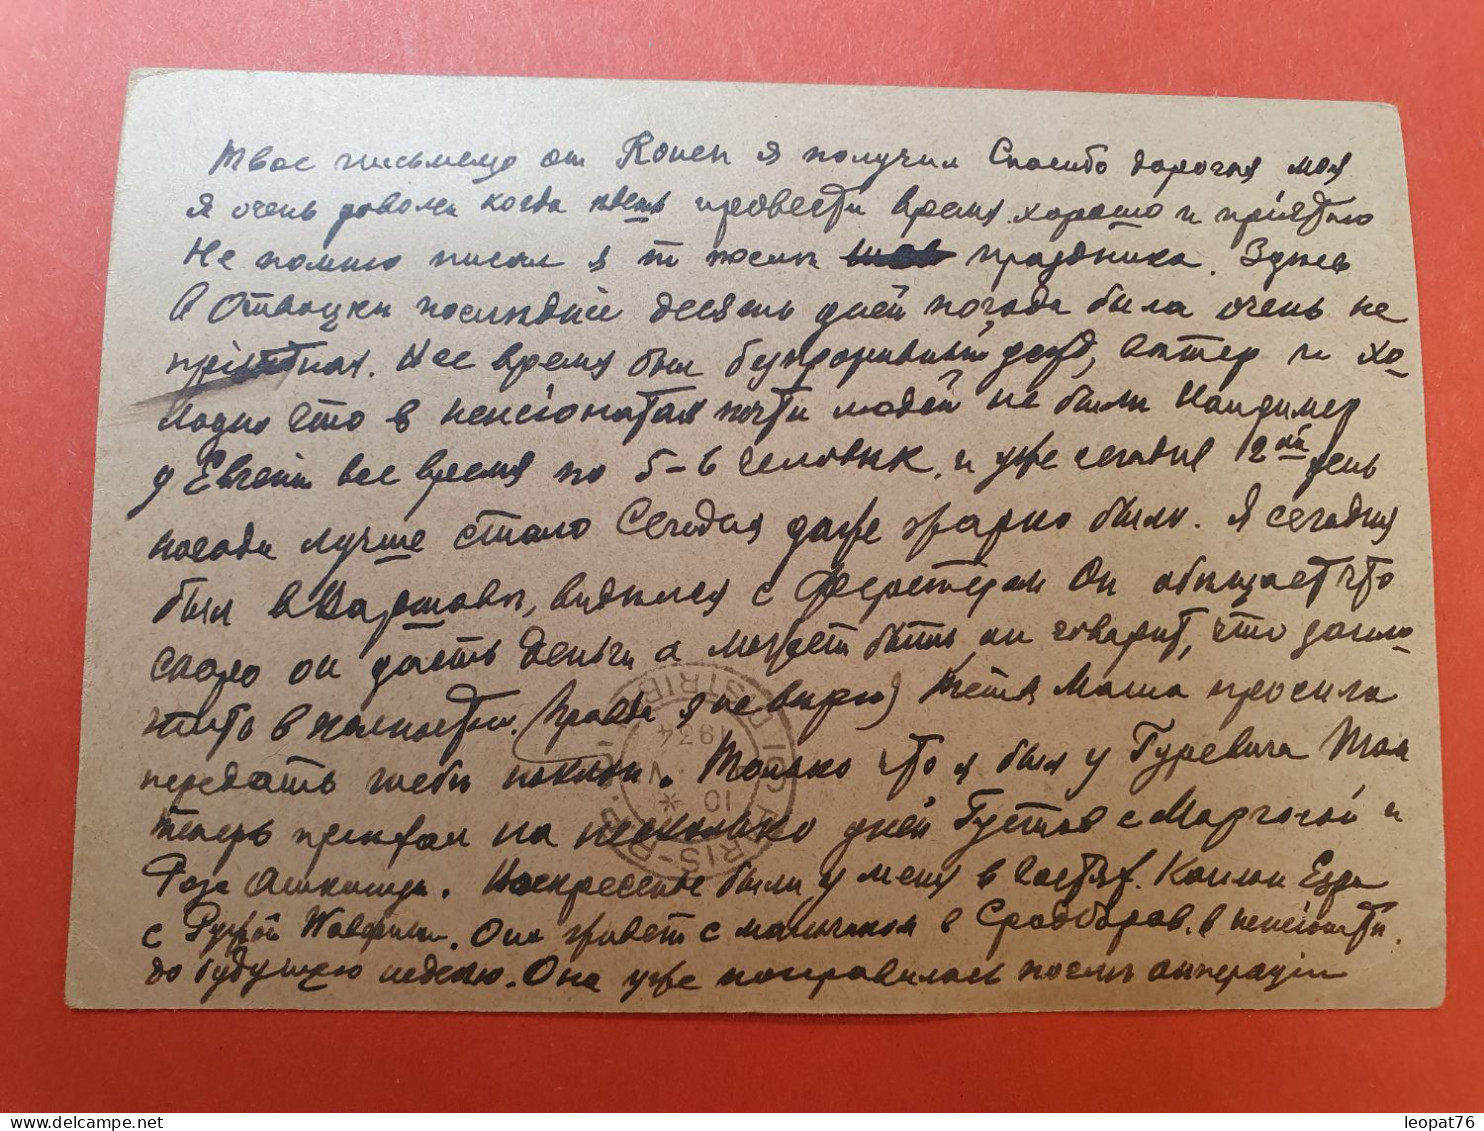 Твое письмецо от Rouen я получил Спасибо дорогая моя
я очень доволен когда провести время хорошо и пріятно
Не помню писал я праздника. Здесь
в Отвоцки послѣдніе десять дней погода была очень не
пріятная. Все время был безпрорывный дождь, вѣтер и хо-
лодно что в пенсіонатах почти людей не были Например
у Евгеніи все время по 5-6 человѣк. и уже сегодня 2ой день
погода лучше стало Сегодня даже жарко было. Я сегодня
был в Варшавѣ, видился с Он обѣщает что
скоро он дасть деньги а может быть он говорит, что запло-
тить в полности. (правда я не вѣрю) тетя Маша просила
передать тебѣ поклон. Только что я был у Гуревича Там
теперь приехал на несколько дней Густав с и
Роза Ашкинази. Воскресенье были у меня в гостях. Каплан Езра
с . Она живет с мальчиком в Сродборов. в пенсіонати.
до будущею неделю. Она уже поправилась послѣ операціи
PARIS-
DISTRIB
10 V
1934
leopat76